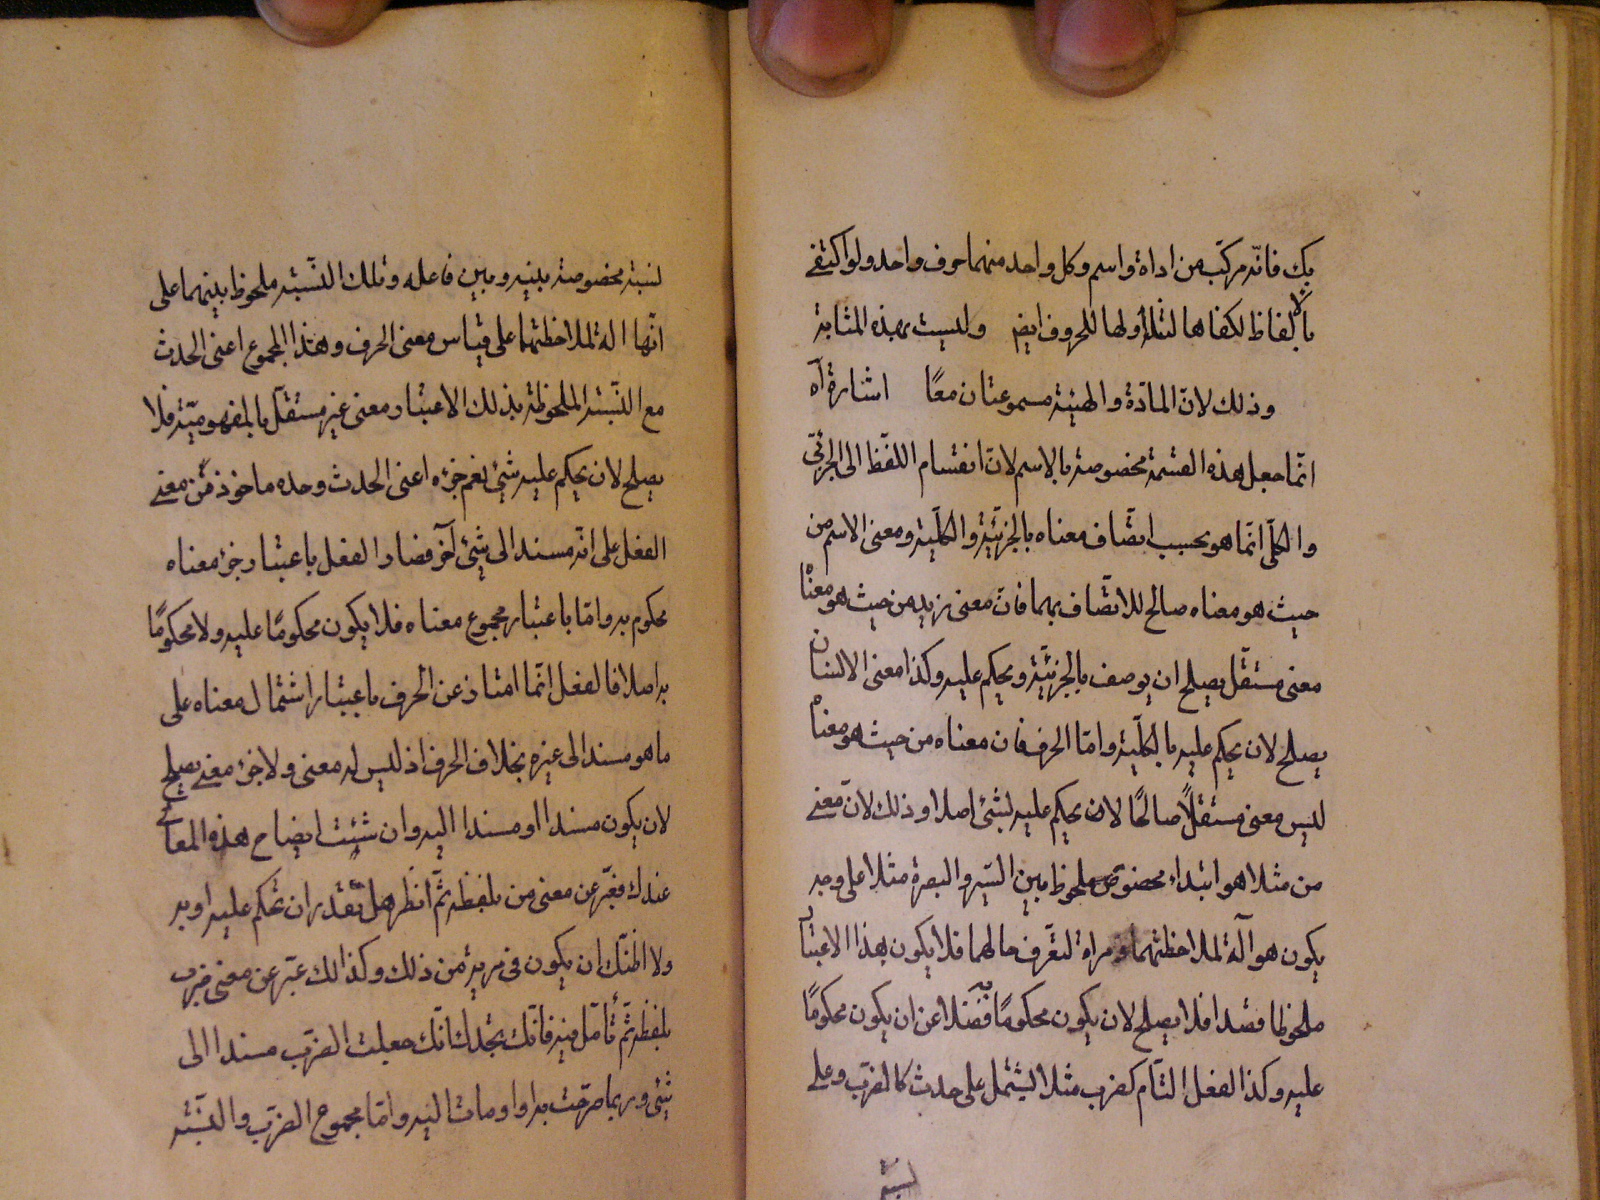 بك فانّه مركّب من اداة واسم وكل واحد منهما حرف واحد ولو اكتفى
بالالفاظ لكفاها لتلك اولها للحروف ايض وليست بهذه المثابة
وذلك لانّ المادّة والهيئة مسموعتان معًا اشارة آه
انّما جعل هذه القسمة مخصوصة بالاسم لانّ انقسام اللفظ الى الجزئيّ
والكلّى انّما هو بحسب اتّصاف معناه بالجزئيّة والكلّية ومعنى الاسم من
حيث هو معناه صالح للاتّصاف بهما فانّ معنى زيد من حيث هو معناه
معنى مستقلّ يصلح ان يوصف بالجزئيّة ويحكم عليه وكذا معنى الانسان
يصلح لان يحكم عليه بالكلّية وامّا الحرف فان معناه من حيث هو معناه
ليس معنى مستقلاًّ صالحًا لان يحكم عليه بشئ اصلا وذلك لانّ معنى
من مثلا هو ابتداء مخصوص ملحوظ بين السّير والبصرة مثلا على وجه
يكون هو آلة لملاحظتهما ومراة لتعّرف حالهما فلا يكون بهذا الاعتبار
ملحوظا قصدا فلا يصلح لان يكون محكومًا به فضلا عن ان يكون محكومًا
عليه وكذا الفعل التّام كضرب مثلا يشتمل على حدث كالضرب وعلى
نسبة
نسبة مخصوصة بينه وبين فاعله وتلك النّسبة ملحوظ بينهما على
انّها الة لملاحظتهما على قياس معنى الحرف وهذا المجموع اعنى الحدث
مع النّسبة الملحوظة بذلك الاعتبار معنى غير مستقلّ بالمفهوميّة فلا
يصلح لان يحكم عليه بشئ نعم جزؤه اعنى الحدث وحده ماخوذ فى معنى
الفعل على انّه مسند الى شئ آخر فصار الفعل باعتبار جزء معناه
محكوم به وامّا باعتبار مجموع معناه فلا يكون محكومًا عليه ولا محكومًا
به اصلا فالفعل انّما امتاز عن الحرف باعتبار اشتمال معناه على
ما هو مسند الى غيره بخلاف الحرف اذ ليس له معنى ولا جزء معنى يصلح
لان يكون مسندا او مسندا اليه وان شئت ايضاح هذه المعانى
عندك فعبّر عن معنى من بلفظه ثمّ انظر هل تقدر ان تحكم عليه او به
ولا اظنّك ان يكون فى مرية من ذلك وكذالك عبّر عن معنى ضرب
بلفظه ثمّ تأمّل فيه فانّك تجدك انّك جعلت الضرب مسندا الى
شئ وربما صرّحت به او اومات اليه وامّا مجموع الضرب والنّسبة